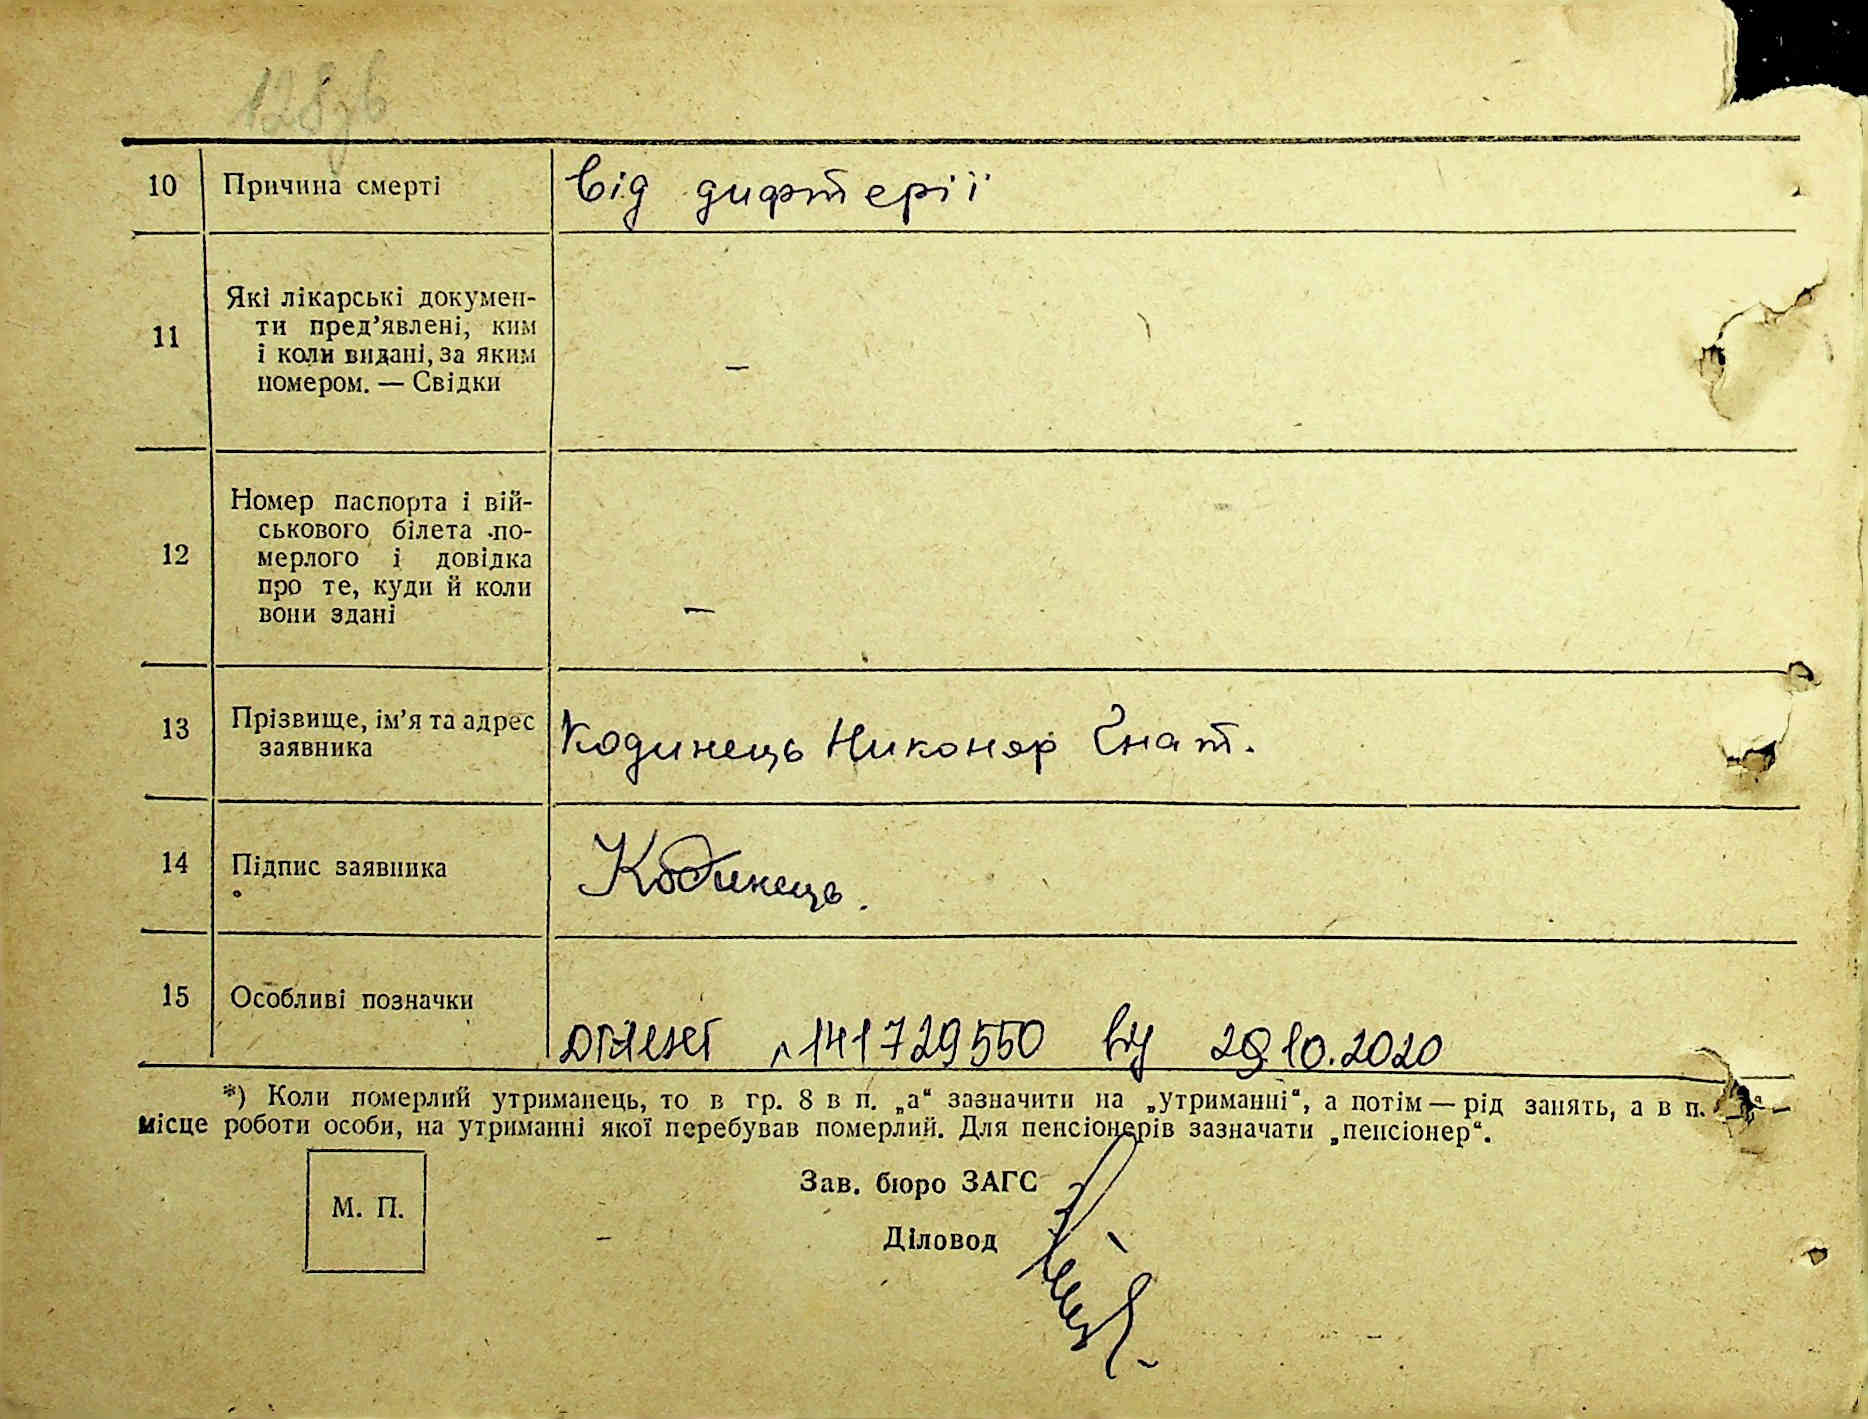 128зв
10 Причина смерті від дифтерії
11 Які лікарські докумен-
ти пред’явлені, ким
і коли видані, за яким
номером. — Свідки –
12 Номер паспорта і вій-
ськового білета по-
мерлого і довідка
про те, куди й коли
вони здані –
13 Прізвище, ім’я та адрес
заявника Кодинець Никонор Гнат.
14 Підпис заявника Кодинець.
15 Особливі позначки
141729550 29.10.2020
*) Коли померлий утриманець, то в гр. 8 в п. „а“ зазначити на „утриманні“, а потім — рід занять, а в п.
місце роботи особи, на утриманні якої перебував померлий. Для пенсіонерів зазначати „пенсіонер“.
М. П.
Зав. бюро ЗАГС
Діловод